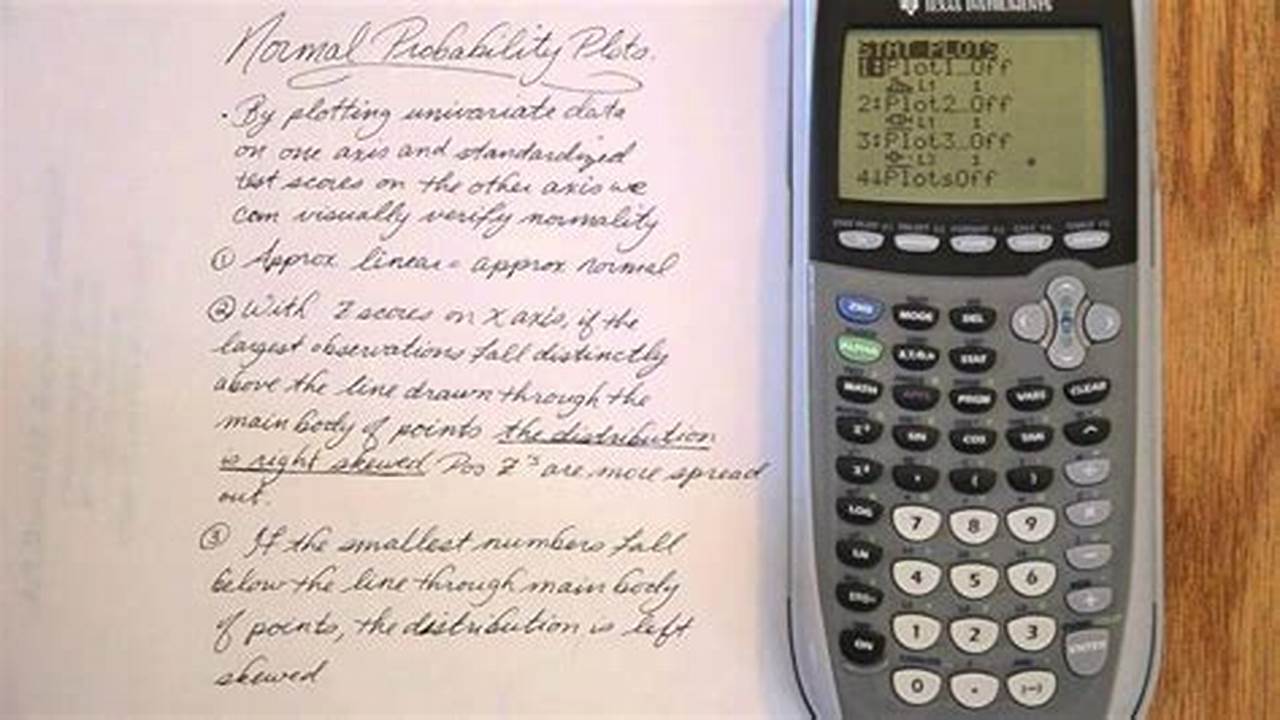 Normal Probability Plots.
• By plotting univariate data
on one axis and standardized
test scores on the other axis we
can visually verify normality
① Approx linear = approx normal
② With Z scores on X axis, if the
largest observations fall distinctly
above the line drawn through the
main body of points the distribution
is right skewed Pos Z's are more spread
out.
③ If the smallest numbers fall
below the line through main body
of points, the distribution is left
skewed
TEXAS INSTRUMENTS
STAT PLOTS
1:Plot1…Off
L1 1
2:Plot2…Off
L1 1
3:Plot3…Off
L3 1
4↓PlotsOff
2ND MODE DEL
ALPHA X,T,θ,n STAT
MATH APPS PRGM VARS CLEAR
SIN COS TAN ^
x² , ( )
LOG 7 8 9
LN 4 5 6 −
STO 1 2 3 +
ON 0 . (−) ENTER